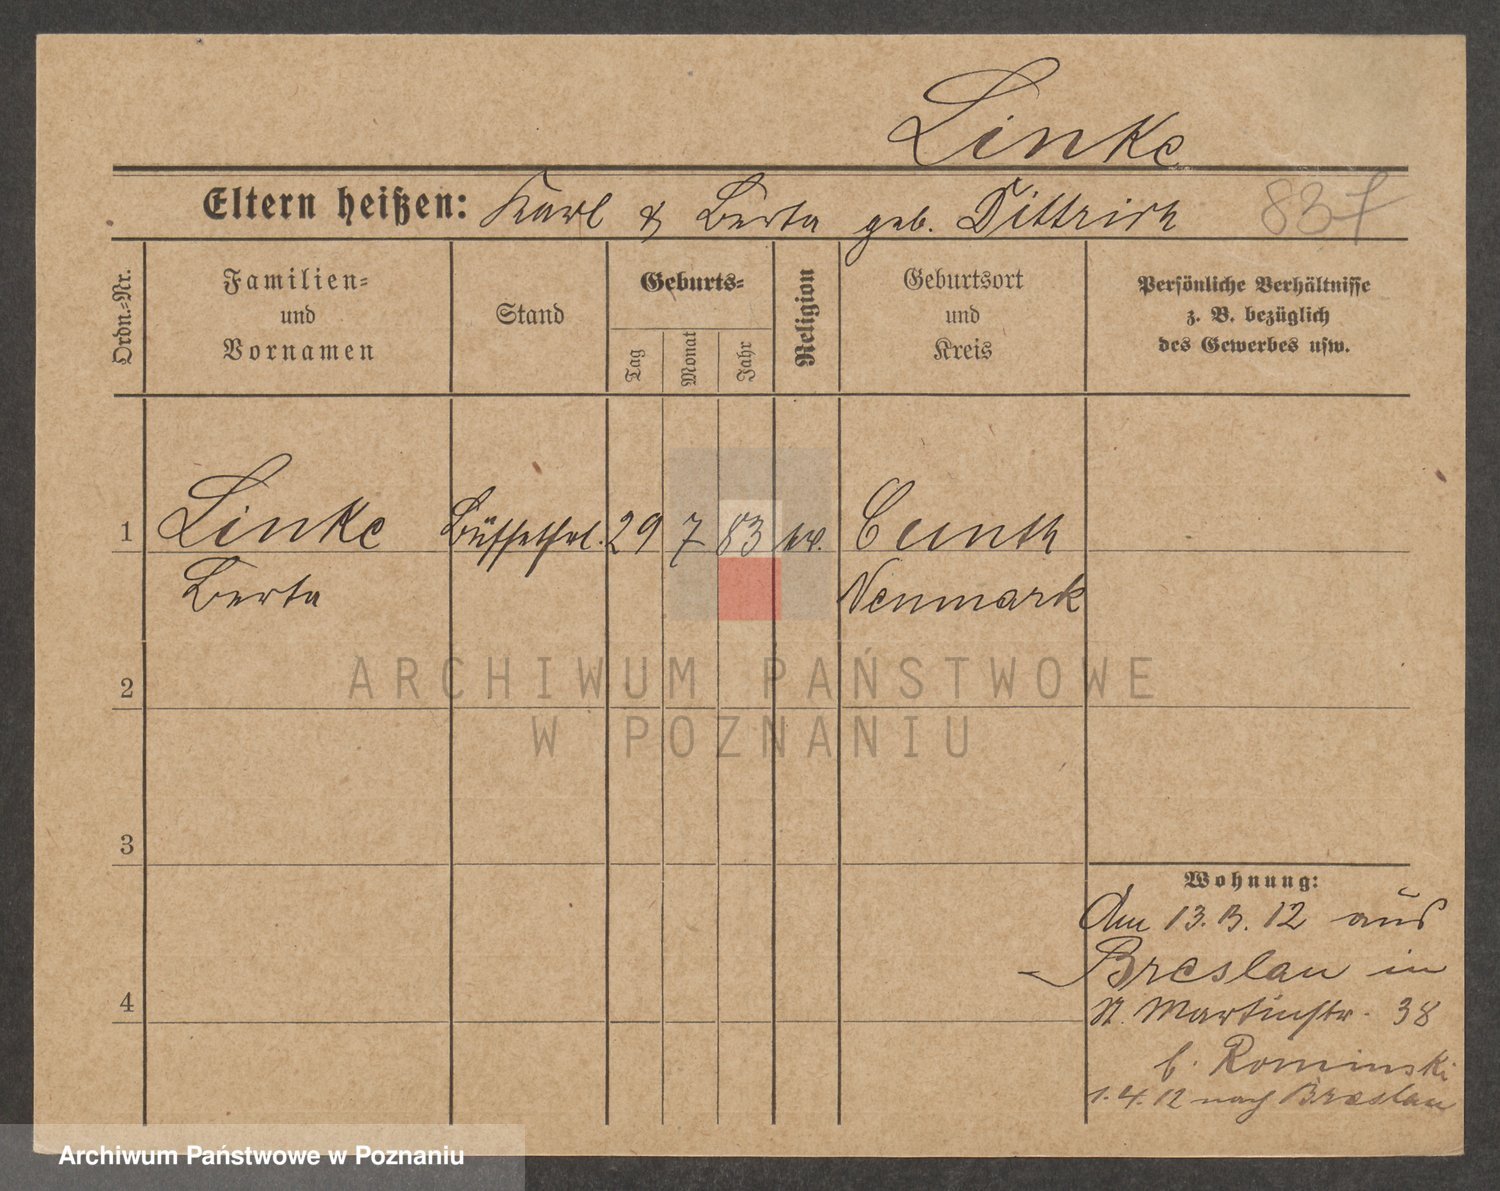 Linke
Eltern heißen: Karl & Berta geb. Dittrich
837
Ordn.-Nr.
Familien-
und
Vornamen
Stand
Geburts-
Tag
Monat
Jahr
Religion
Geburtsort
und
Kreis
Persönliche Verhältnisse
z. B. bezüglich
des Gewerbes usw.
1 Linke Büffetfrl. 29 7 83 ev. Cunth
Berta Neumark
2
ARCHIWUM PAŃSTWOWE
W POZNANIU
3
Wohnung:
Am 13. 12 aus
Breslau in
4
St. Martinstr. 38
b. Rominski
1.4.12 nach Breslau
Archiwum Państwowe w Poznaniu